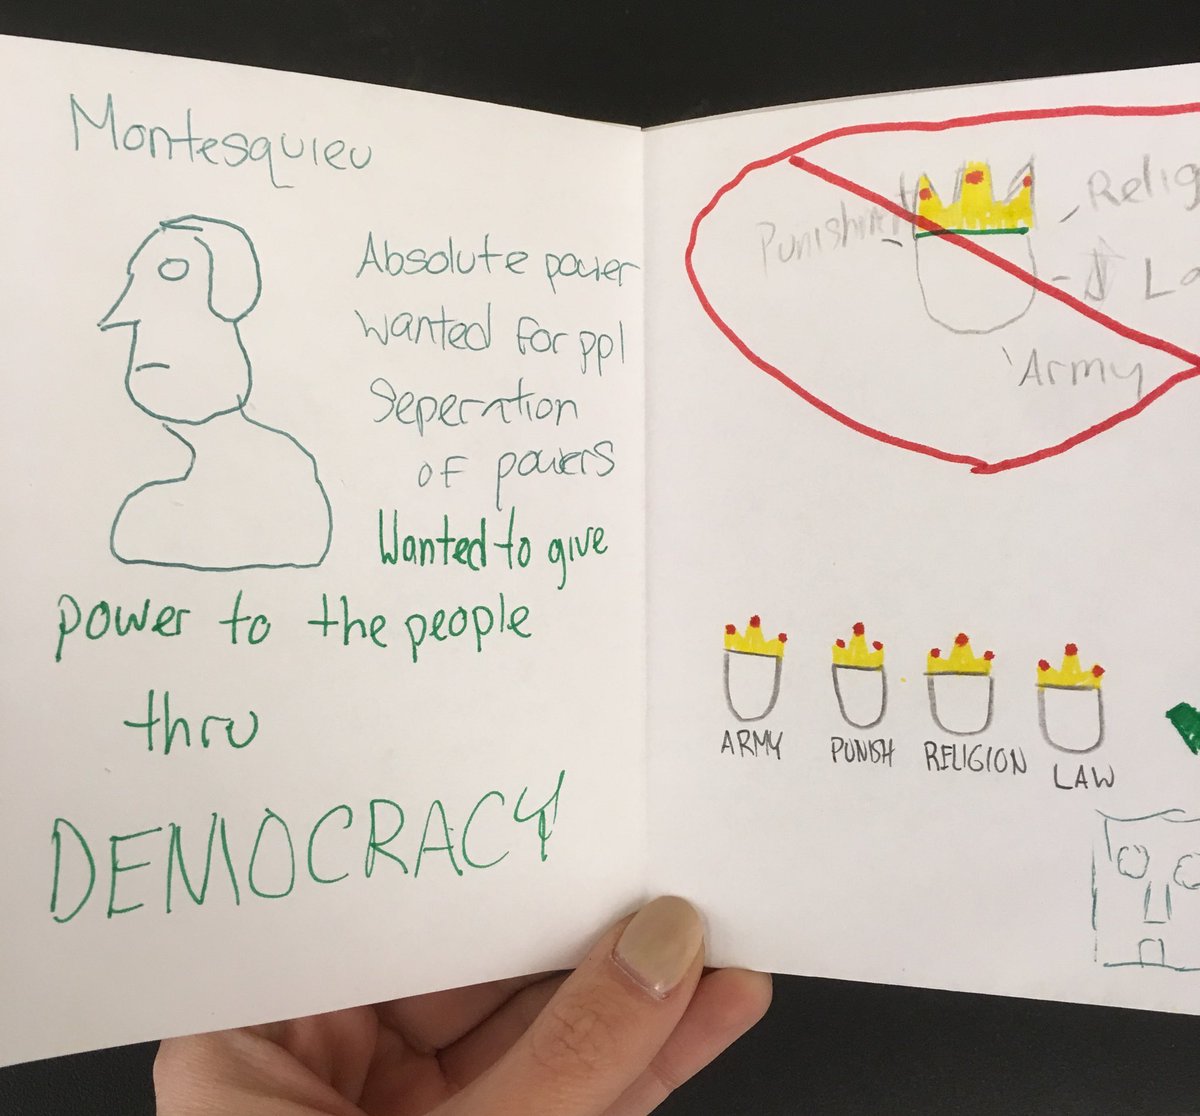 Montesquieu
Absolute power
wanted for ppl
Seperation
of powers
Wanted to give
power to the people
thru
DEMOCRACY
Punishment
Relig
La
Army
ARMY
PUNISH
RELIGION
LAW